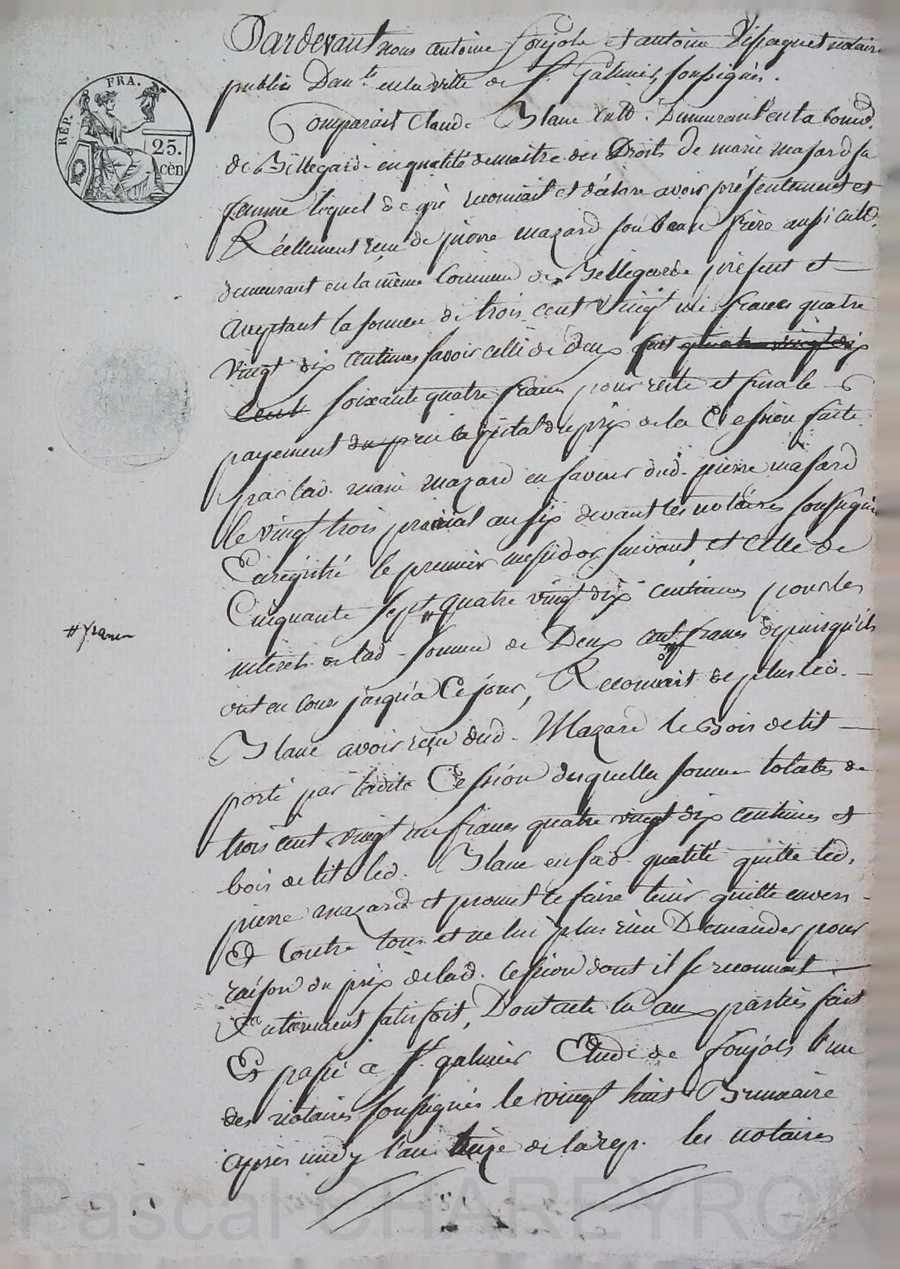 REP. FRA.
25.
cèn
Pardevant nous antoine foujols et antoine notaire
public Dan.ts en la ville de St. Galmier soussignés.
Comparait Claude Blanc cult. Demeurant en la comm.
de Bellegarde en qualité de maitre des Droits de marie masard sa
femme lequel de gré reconnait et déclare avoir présentement et
Réellement reçu de pierre mazard son beau frère aussi cult.
demeurant en la même Commune de Bellegarde présent et
acceptant la somme de trois cent vingt un francs quatre
vingt dix centimes savoir celle de Deux cent quatre vingt dix
cent soixante quatre francs pour reste et final
payement du prix capital du prix de la Cession faite
par lad. marie mazard en faveur dud. pierre masard
le vingt trois prairial an six devant les notaires soussignés
Enregistré le premier messidor suivant, et celle de
Cinquante sept # quatre vingt dix centimes pour les
# francs
interets de lad. somme de Deux cent francs depuis qu'ils
ont eu cours jusqu'à Ce jour, Reconnait de plus led.
Blanc avoir reçu dud. Mazard le Bois de lit
porté par ladite Cession desquelles somme totales de
trois cent vingt un francs quatre vingt dix centimes et
bois de lit led. Blanc en sad. qualité quitte led.
pierre mazard et promet le faire tenir quitte envers
Et Contre tous et ne lui plus rien Demander pour
raison du prix de lad. Cession dont il se reconnait
Entierement satisfait, Dont acte lu aux parties fait
Et passé a St. galmier Etude de foujols l'un
des notaires soussignés le vingt huit Brumaire
après midy l'an de la rep. les notaires
Pascal CHAREYRON